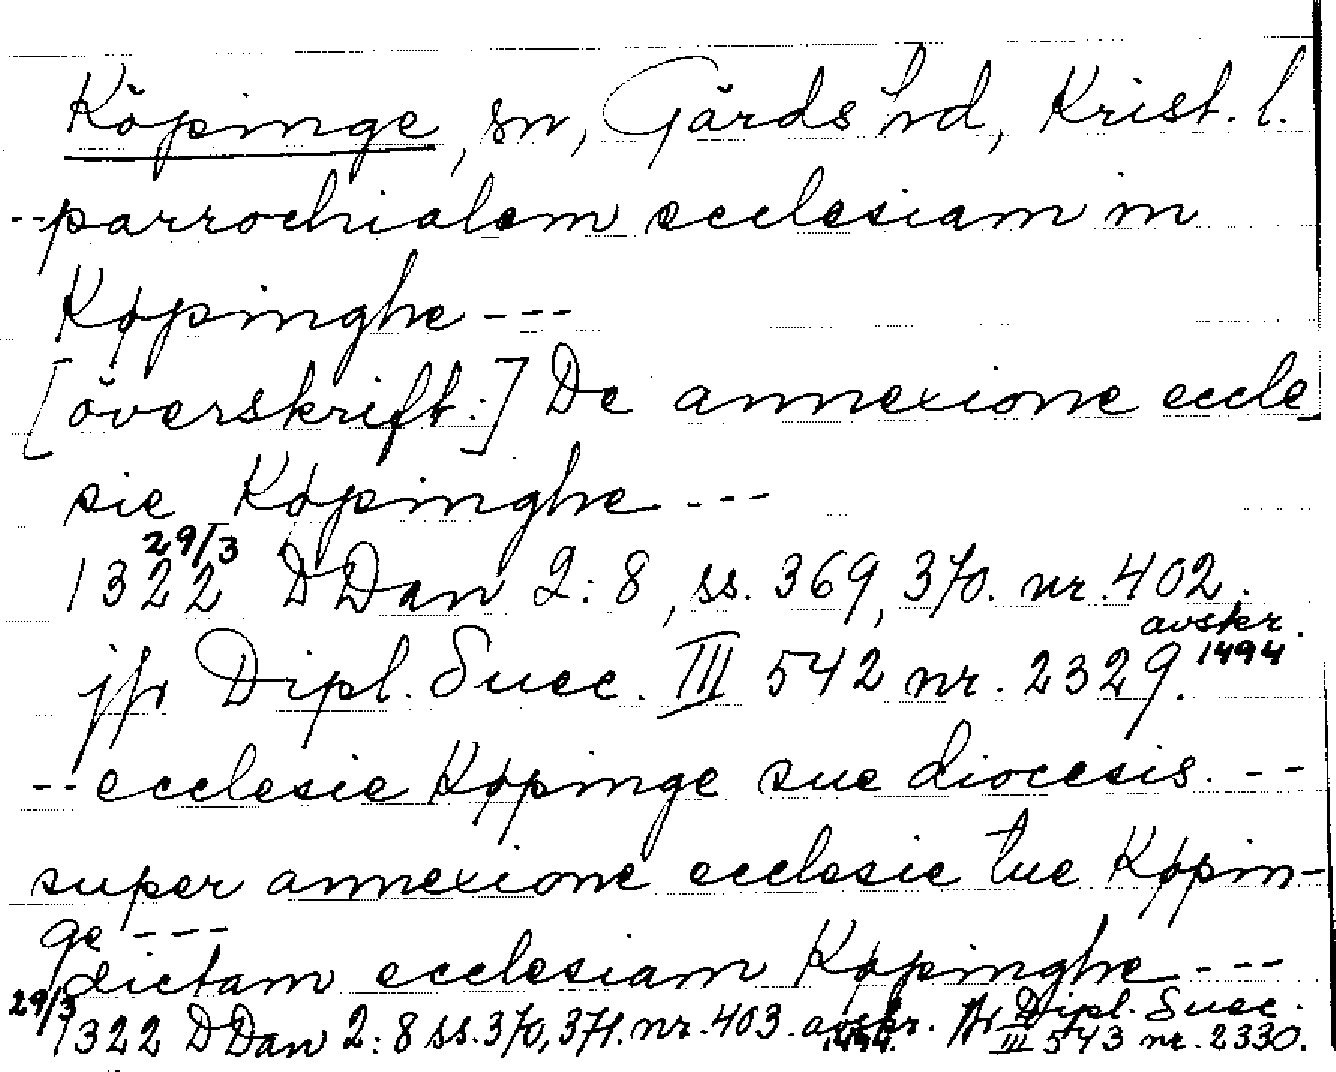 Köpinge, sn, Gärds hd, Krist. l.
--parrochialem ecclesiam in
Køpinghe ---
[överskrift:] De annexione eccle
sie Køpinghe ---
1322 29/3 DDan 2:8, ss. 369, 370. nr. 402. avskr. 1494
jfr Dipl. Suec. III 542 nr. 2329.
-- ecclesie Køpinge sue diocesis. --
super annexione ecclesie tue Køpin-
ge ---
dictam ecclesiam Køpinghe ---
29/3 1322 DDan 2:8 ss. 370, 371. nr. 403. avskr. 1494. jfr Dipl. Suec.
III 543 nr. 2330.